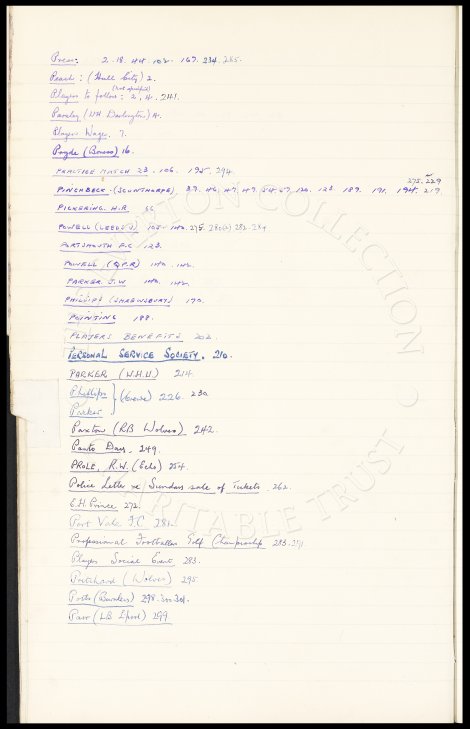 Press: 2. 18. 44. 102. 167. 234. 285.
Peach: (Hull City) 2.
(Not specified)
Players to follow: 2. 4. 241.
Paisley (LH Darlington) 4.
Players Wage. 7.
Pryde (Barrow) 16.
PRACTICE MATCH 23. 106. 195. 294.
275. 229
PINCHBECK. (SCUNTHORPE) 39. 46. 47. 49. 54. 57. 120. 123. 189. 191. 194. 217
PICKERING. H.R. 56
POWELL (LEEDS U) 105. 140. 275. 282. 284
PORTSMOUTH F.C. 123.
POWELL. (Q.P.R) 140. 142.
PARKER. J.W. 140. 142.
PHILLIPS (SHREWSBURY) 170.
POINTING 188.
PLAYERS BENEFITS 202.
PERSONAL SERVICE SOCIETY. 210.
PARKER (W.H.U.) 214.
Phillips } (Crewe) 226. 230.
Parker
Paxton (RB Wolves) 242.
Pants Days. 249.
PROLE, R.W. (Echo) 254.
Police Letter re Sundays sale of Tickets. 262.
E.H. Prince 272.
Port Vale F.C. 281.
Professional Footballers Golf Championship 283.
Players Social Event 283.
Pritchard (Wolves) 295
Potts (Burnley) 298. 300. 301.
Parr (LB Lpool) 299.
CHARITABLE TRUST
COLLECTION